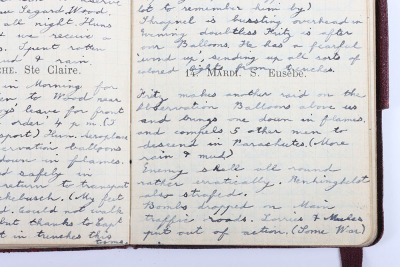 Legard Wood,
all night. Huns
we receive a
Spent rotten
& rain.
CHE. Ste Claire.
in Morning for
to Wood near
leave for front
order 4 p.m. (
sport) Hun Aeroplane
ervation balloons
down in flames.
d safely in
return to transport
ckebusch. (My feet
d. Could not walk
but thanks to Capt
t in trenches this
time)
lot to remember him by)
Shrapnel is bursting overhead in
doubtless Fritz is after
our Balloons. He has a fearful
wind up, sending up all sorts of
colored lights from trenches.
14. MARDI. S. Eusèbe.
Fritz makes another raid on the
Observation Balloons above us
and brings one down in flames.
and compels 5 other men to
descend in Parachutes. (More
rain & mud)
Enemy shell all round
rather erratically.
also strafed.
Bombs dropped on Main
traffic roads. Lorries & Mules
put out of action. (Some War)